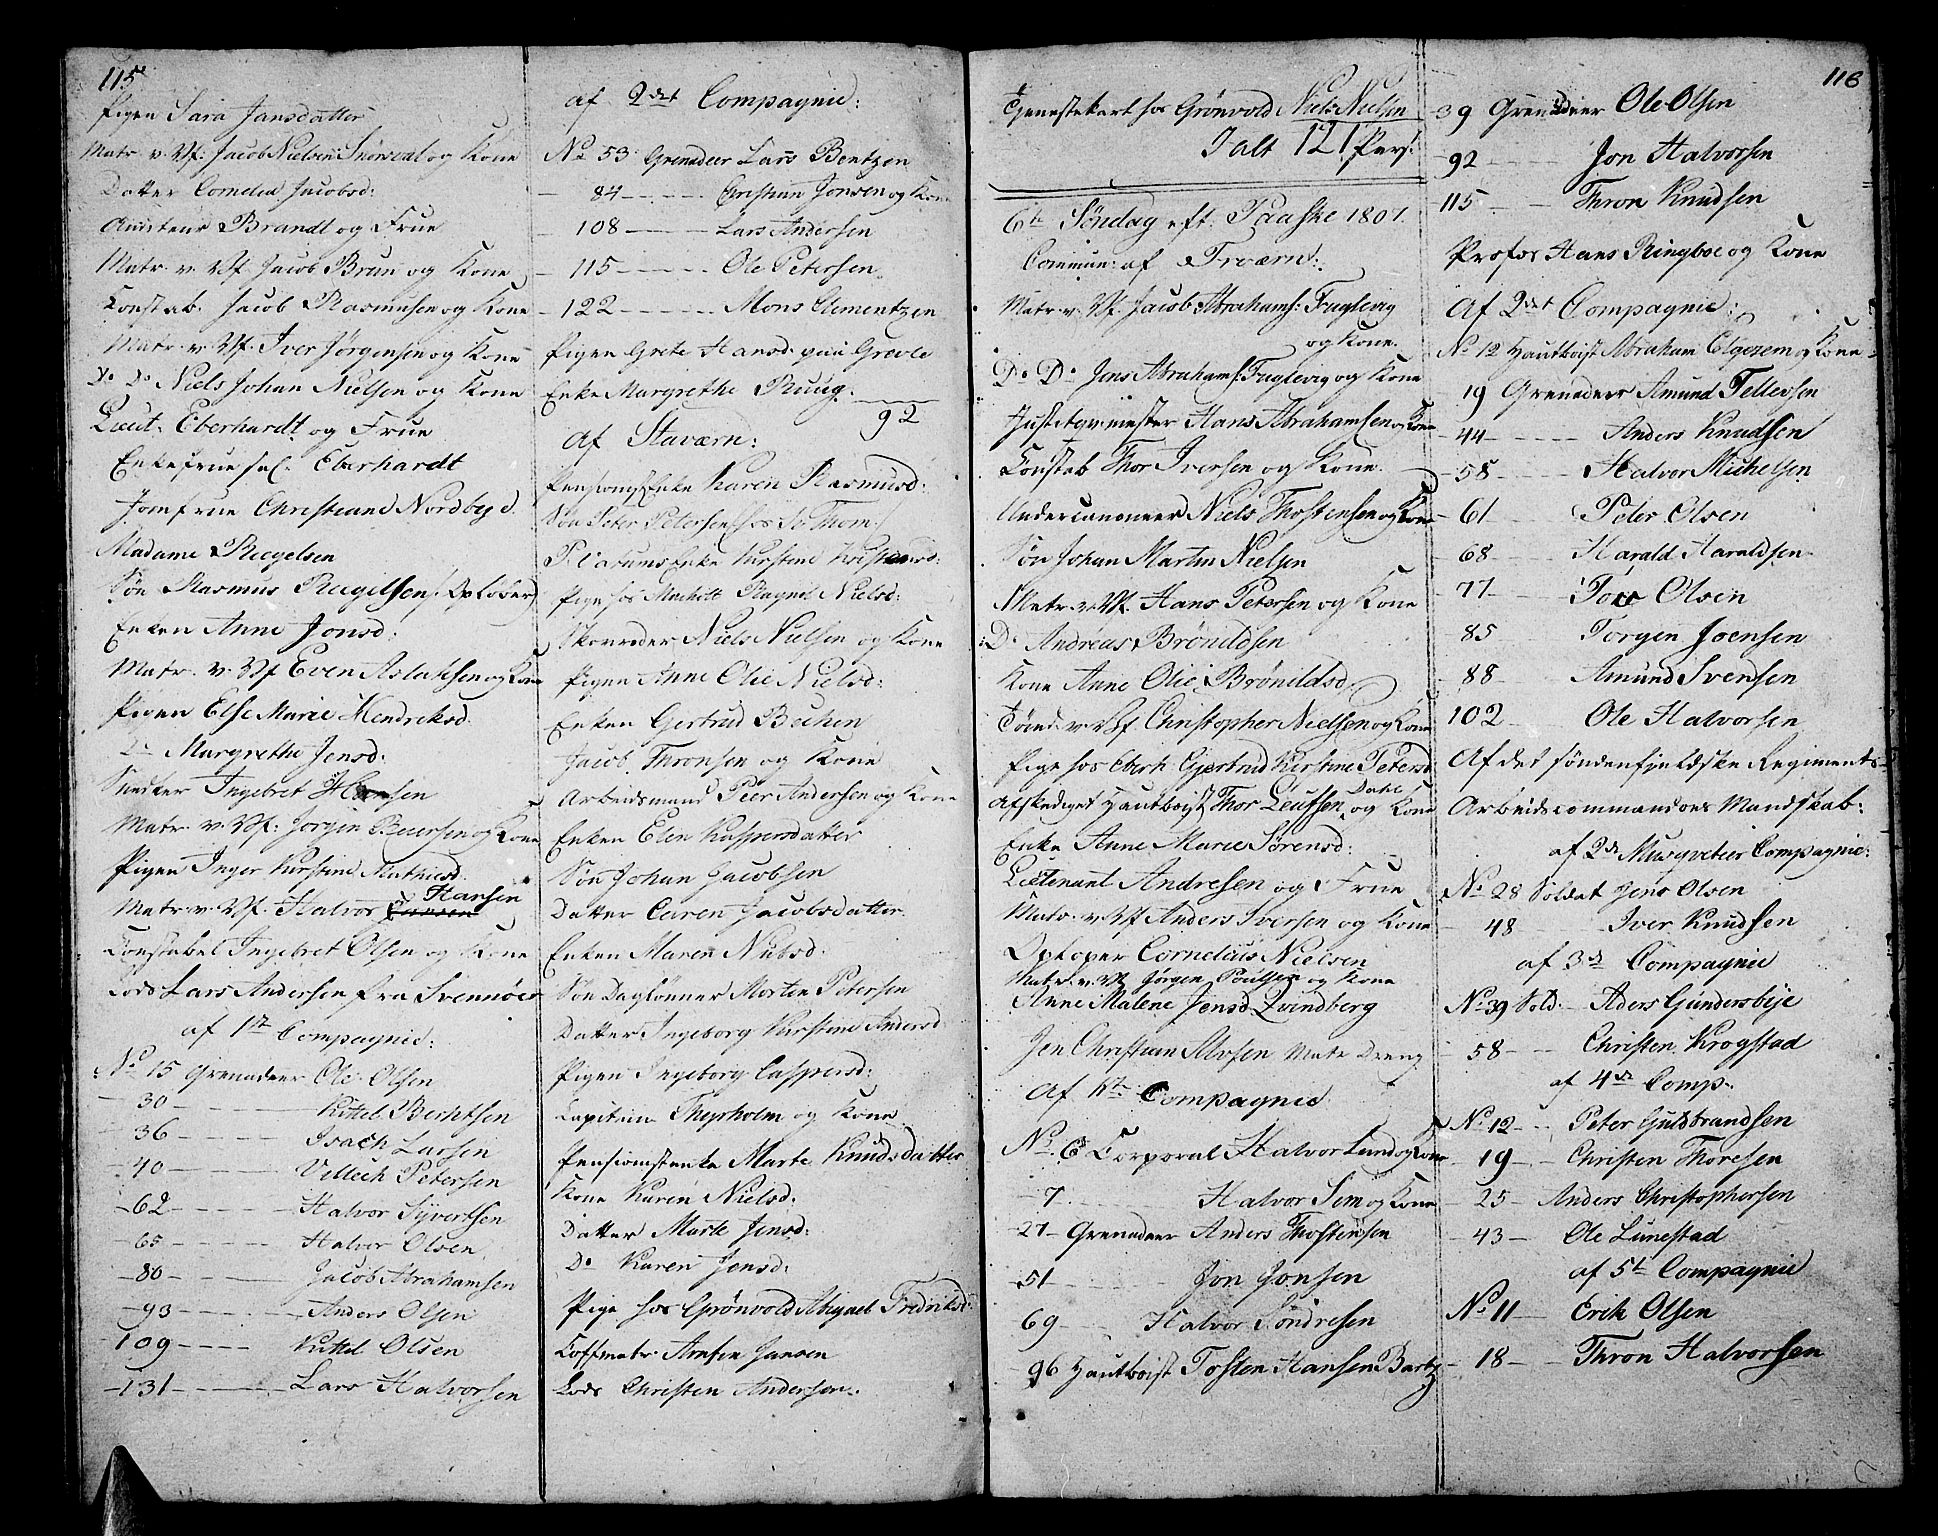 115
Pigen Sara Jansdatter
Matr. v. Vf. Jacob Nielsen Snørsval og Kone
Datter Cornelia Jacobsd:
Brandt og Frue
Matr. v. Vf. Jacob Brun og Kone
Constab. Jacob Rasmusen og Kone
Matr. v. Vf. Iver Jørgensen og Kone
Do Do Niels Johan Nielsen og Kone
Lieut. Eberhardt og Frue
Enkefrue sal. Eberhardt
Jomfrue Christiane Nordbye d.
Madame Riegelsen
Søn Rasmus Riegelsen (: Opløber)
Enken Anne Jonsd:
Matr. v. Vf Even Aslaksen og Kone
Pigen Else Marie Hendriksd.
D. Margrethe Jensd:
Snedker Ingebret Hansen
Matr. v. Vf: Jørgen Beiersen og Kone
Pigen Inger Kirstine Mathiesd.
Matr. v. Vf. Halvor Hansen
Constabel Ingebret Olsen og Kone
Lods Lars Andersen fra Svennøer
af 1st Compagnie:
No 15 Grenadeer Ole Olsen
30 Kittel Berntsen
36 Isach Larsen
40 Villech Petersen
62 Halvor Syvertsen
65 Halvor Olsen
80 Jacob Abrahamsen
93 Anders Olsen
109 Kittel Olsen
131 Lars Halvorsen
af 2det Compagnie:
No 53 Grenadeer Lars Bentzen
84 Christian Jonsen og Kone
108 Lars Andersen
115 Ole Petersen
122 Mons Clementzen
Pigen Grete Hansd. paa Grevle
Enke Margrethe Ruug.
92
Af Staværn:
Pensions Enke Karen Rasmusd:
Søn Peter Petersen (hos Thom:)
Enke Kirstine
Pige hos Ragnil Nielsd:
Skoereder Niels Nielsen og Kone
Pigen Anne Olie Nielsd:
Enken Gertrud Buchen
Jacob Thronsen og Kone
Arbeidsmand Peer Andersen og Kone
Enken Elen Kaspersdatter
Søn Johan Jacobsen
Datter Caren Jacobsdatter
Enken Maren Nielsd:
Søn Daglønner Morten Petersen
Datter Ingeborg Kirstine Andersd
Pigen Ingeborg Caspersd:
Capitain Theyrholm og Kone
Pensionsenke Marte Knudsdatter
Kone Karen Nielsd.
Datter Marte Jensd:
Do Karen Jensd:
Pige hos Grønvold Abigael Fredriksd:
Coffmatr. Arnsen Jansen
Lods Christen Andersen.
Tjenestekarl hos Grønvold Niels Nielsen
Ialt 121 Pers.
6te Søndag eft. Paaske 1801.
Commun: af Frværn:
Matr. v. Vf. Jacob Abrahams: Fuglevig
og Kone.
Do Do Jens Abrahams: Fuglevig og Kone
Hans Abrahamsen og Kone
Constab Thor Iversen og Kone.
Undercanoneer Niels Thostensen og Kone
Søn Johan Martin Nielsen
Matr. v. Vf. Hans Petersen og Kone
Do Andreas Brønildsen
Kone Anne Olie Brønildsd.
Tømd. v. Vf. Christopher Nielsen og Kone
Pige hos Eberh. Gjertrud Kirstine Petersd.
Afskediget Hautboist Thor Leufsen Dahl og Kone
Enke Anne Marie Sørensd:
Lieutenant Andresen og Frue
Matr. v. Vf Anders Iversen og Kone
Opløper Cornelius Nielsen
Matr. v. Vf. Jørgen Poulsen og Kone
Anne Malene Jensd. Zvindberg
Jen Christian Alvsen Matr Dreng
Af 1st Compagnie
No 6 Corporal Halvor Lund og Kone
7 Halvor Sem og Kone
27 Grenadeer Anders Thostensen
51 Jon Jonsen
69 Halvor Sondresen
96 Hautboist Tosten Hansen Bartz
116
39 Grenadeer Ole Olsen
92 Jon Halvorsen
115 Thron Knudsen
Profos Hans Ringboe og Kone
Af 2det Compagnie:
No 12 Hautboist Abraham Elgezem og Kone
19 Grenadeer Amund Tellevsen
44 Anders Knudsen
58 Halvor Michelsen
61 Peter Olsen
68 Harald Haraldsen
77 Tov Olsen
85 Torgen Joensen
88 Amund Svensen
102 Ole Halvorsen
Af det søndenfjeldske Regiments
Arbeidscommandoes Mandskab:
af 2d Musqveteer Compagnie:
No 28 Soldat Jens Olsen
48 Iver Knudsen
af 3d Compagnie
No 39 Sold. Aders Gundersbye
58 Christen Krogstad
af 4d Comp.
No 12 Peter Guldbrandsen
19 Christen Thoresen
25 Anders Christophersen
43 Ole Lunestad
af 5t Compagnie
No 11 Erik Olsen
18 Thron Halvorsen